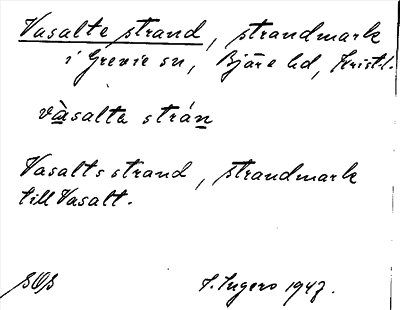 Vasalte strand, strandmark
i Grevie sn, Bjäre hd, Krist.l.
vàsalta strán
Vasalts strand, strandmark
till Vasalt.
SOS
S. Ingers 1947.